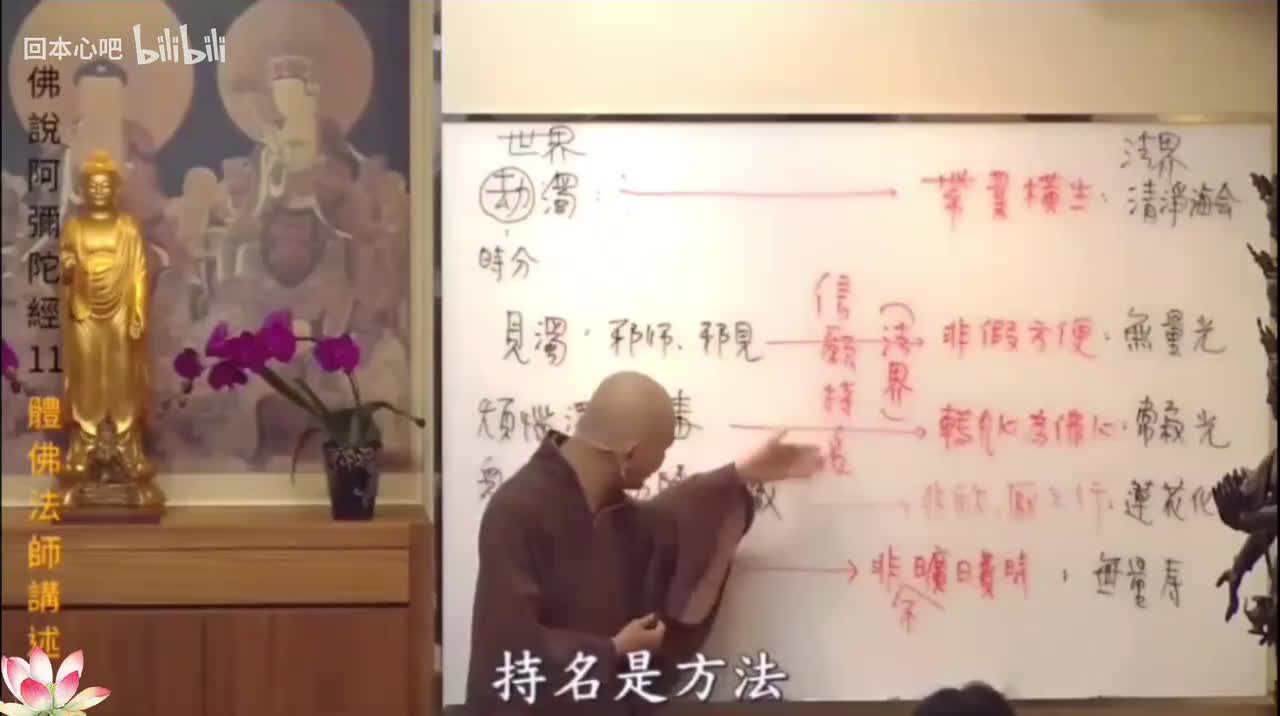 回本心吧 bilibili
佛說阿彌陀經11 體佛法師講述
世界
法界
劫濁：
帶業橫生：清淨海会
時分
信願持名
（法界）
見濁：邪师、邪見
非假方便：無量光
煩惱濁
毒
轉凡心為佛心：常寂光
非欣厭之行：蓮花化
非曠日費時：無量寿
不
持名是方法